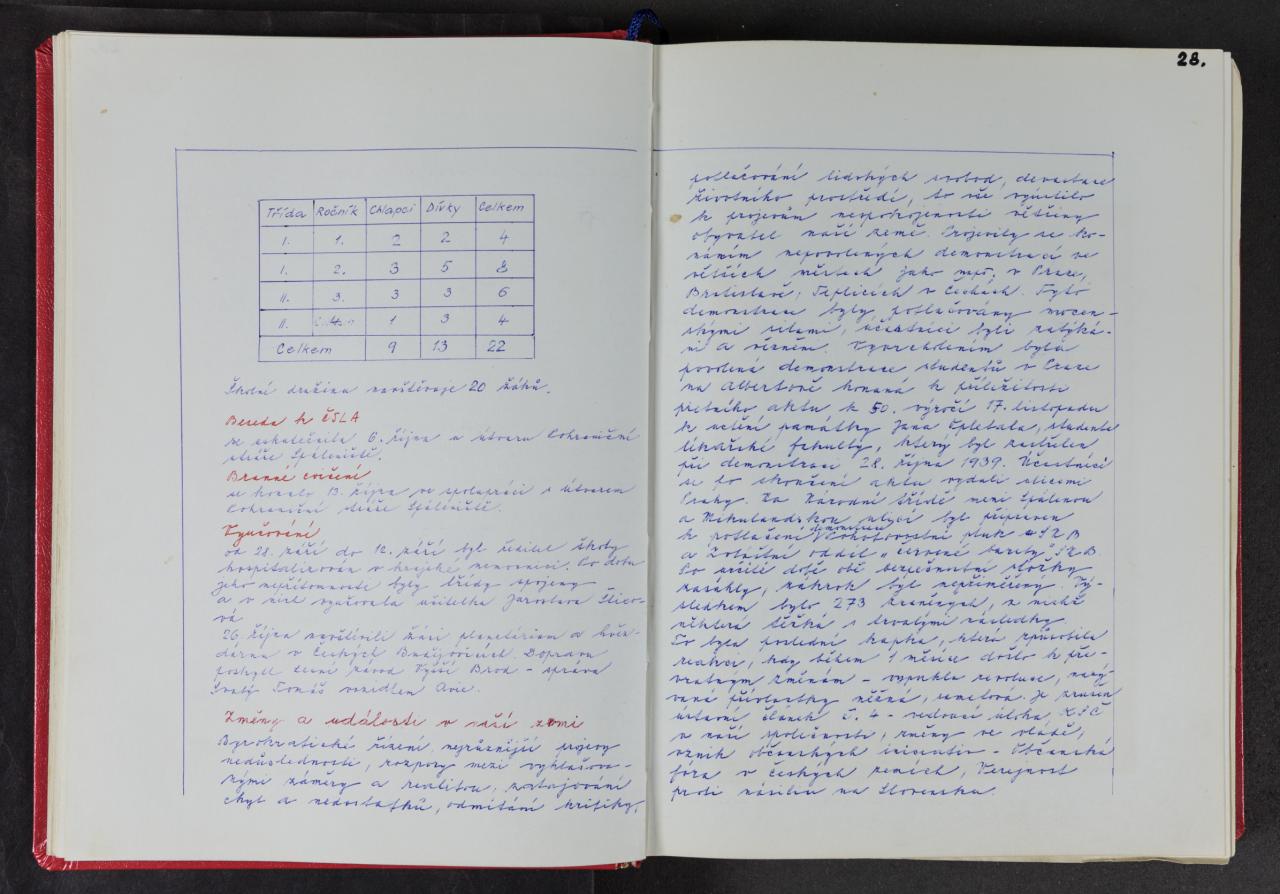 Třída Ročník Chlapci Dívky Celkem
I. 1. 2 2 4
I. 2. 3 5 8
II. 3. 3 3 6
II. 1 3 4
Celkem 9 13 22
Školní družinu navštěvuje 20 žáků.
Beseda k ČSLA
se uskutečnila 6. října u útvaru Pohraniční
stráže Spáleniště.
Branné cvičení
se konalo 13. října ve spolupráci s útvarem
Pohraniční stráže Spáleniště.
Vyučování
od 28. září do 12. září byl ředitel školy
hospitalizován v krajské nemocnici. Po dobu
jeho nepřítomnosti byly třídy spojeny
a v nich vyučovala učitelka Jaroslava
vá
26. října navštívili žáci planetárium a hvěz-
dárnu v Českých Budějovicích. Dopravu
poskytl závod Vyšší Brod - správa
Svatý Tomáš vozidlem Avie.
Změny a události v naší zemi
Byrokratické řízení, nejrůznější projevy
nedůslednosti, rozpory mezi vyhlašova-
nými záměry a realitou, zatajování
chyb a nedostatků, odmítání kritiky,
28.
potlačování lidských svobod, devastace
životního prostředí, to vše vyústilo
k projevům nespokojenosti většiny
obyvatel naší země. Projevily se ko-
náním nepovolených demonstrací ve
větších městech jako např. v Praze,
Bratislavě, Teplicích v Čechách. Tyto
demonstrace byly potlačovány mocen-
skými silami, účastníci byli zatýká-
ni a vězněni. Vyvrcholením byla
povolená demonstrace studentů v Praze
na Albertově konaná k příležitosti
pietního aktu k 50. výročí 17. listopadu
k uctění památky Jana Opletala, studenta
lékařské fakulty, který byl zastřelen
při demonstraci 28. října 1939. Účastníci
se po skončení aktu vydali ulicemi
Prahy. Na Národní třídě mezi Spálenou
a Mikulandskou ulicí byl připraven
k potlačení demonstrace Pohotovostní pluk SNB
a Zvláštní oddíl "červené barety" SNB
Po určité době obě bezpečnostní složky
zasáhly, zákrok byl nepřiměřený. Vý-
sledkem bylo 273 zraněných, z nichž
některá těžká s trvalými následky.
To byla poslední kapka, která způsobila
reakci, kdy během 1 měsíce došlo k pře-
vratným změnám - vypukla revoluce, nazý
vaná přívlastky něžná, sametová. Je zrušen
ústavní článek č. 4 - vedoucí úloha KSČ
v naší společnosti, změny ve vládě,
vznik občanských iniciativ - Občanská
fóra v českých zemích, Verejnosť
proti násiliu na Slovensku.